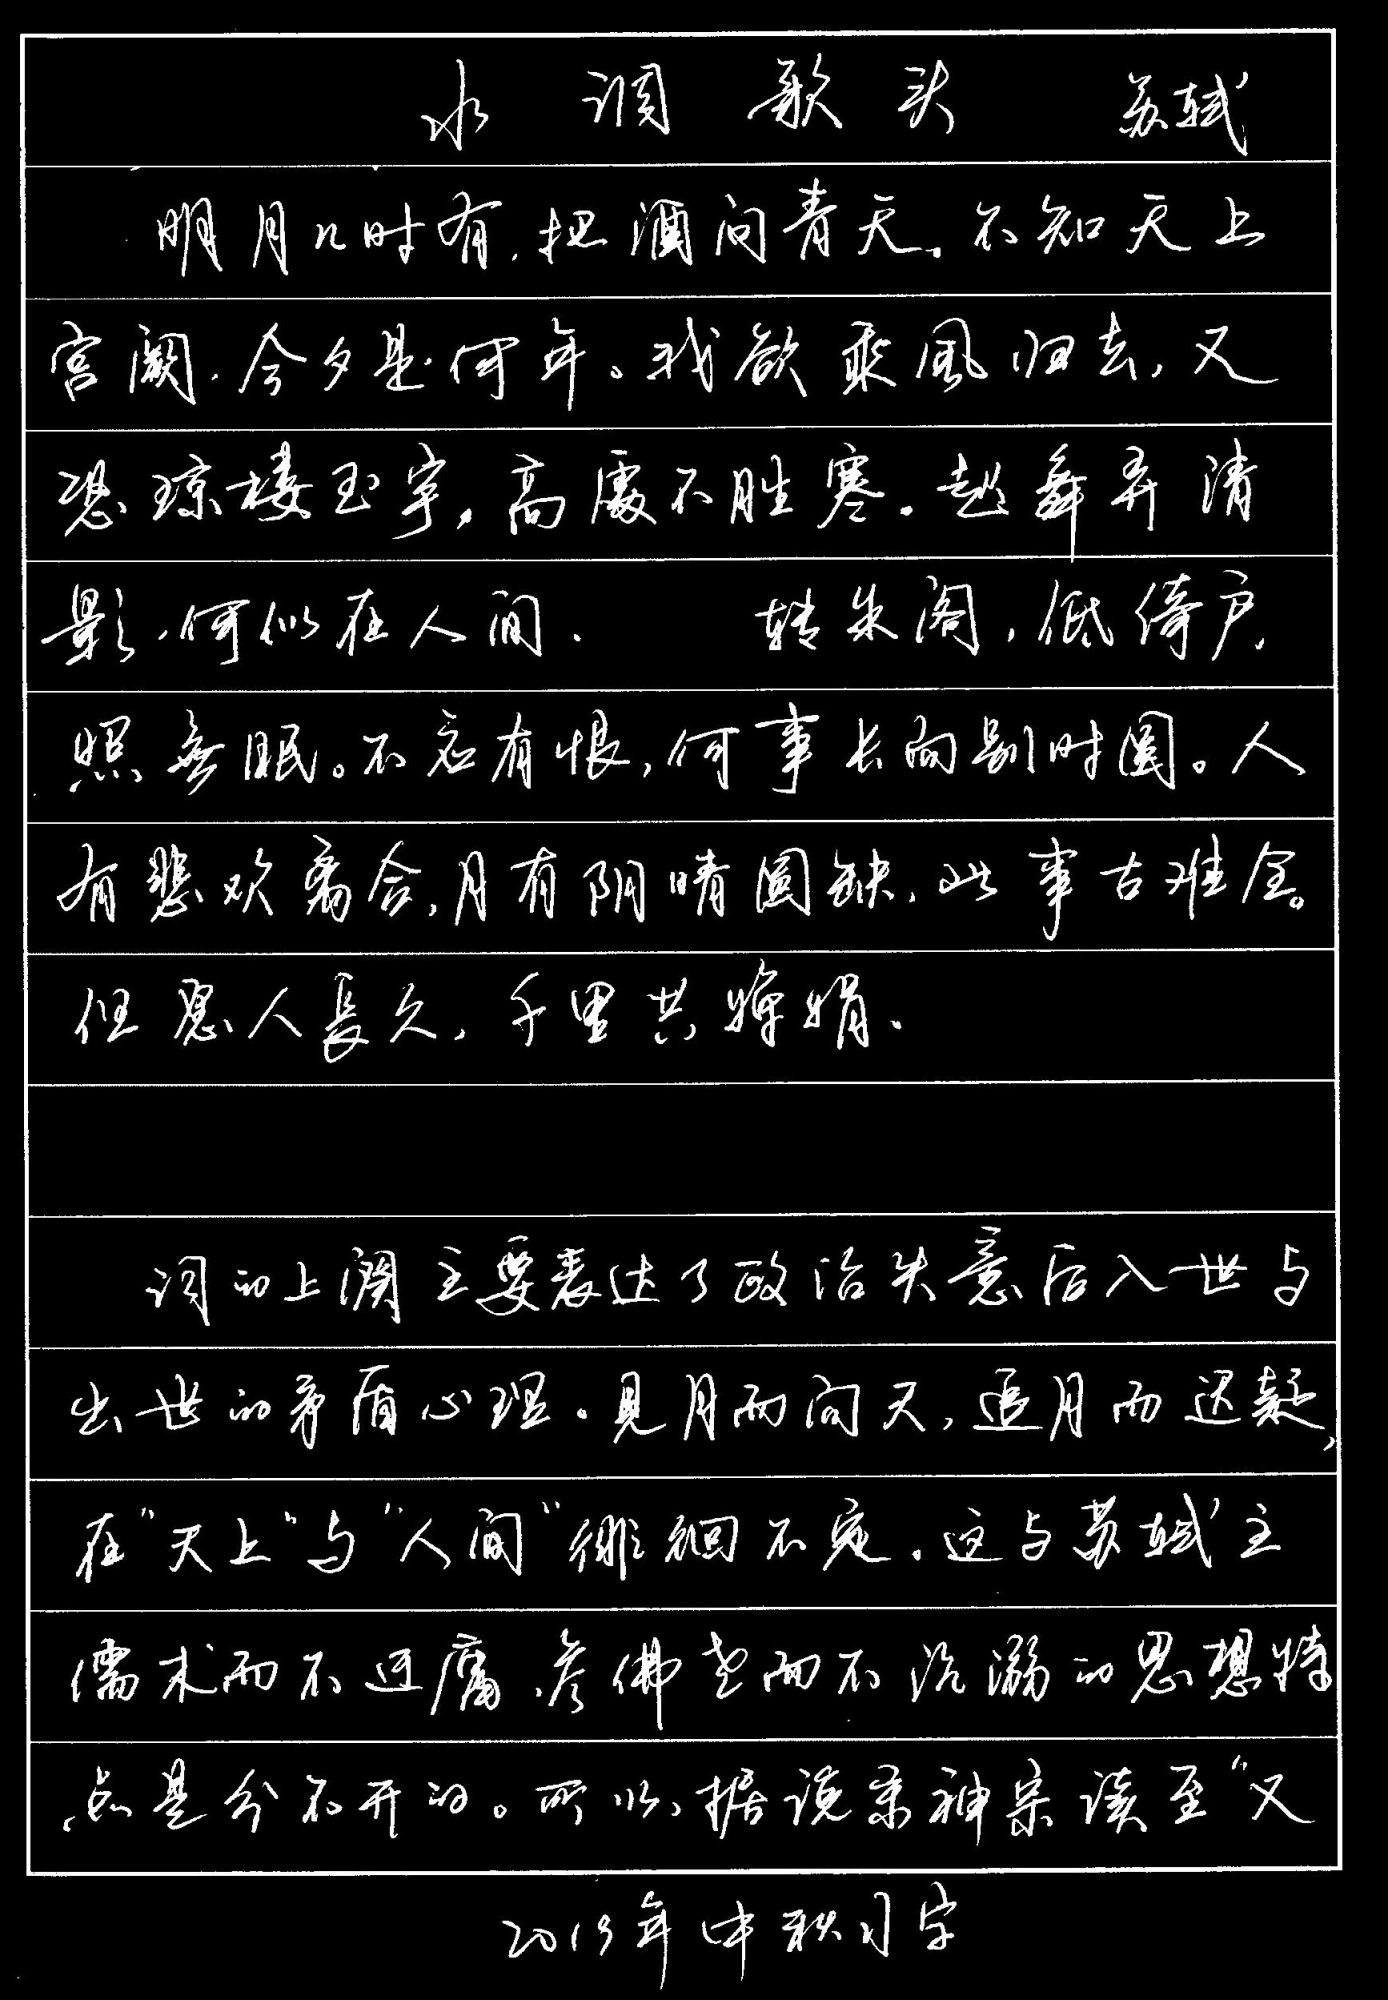 水调歌头 苏轼
明月几时有，把酒问青天。不知天上
宫阙，今夕是何年。我欲乘風归去，又
恐琼楼玉宇，高處不胜寒。起舞弄清
影，何似在人间。 转朱阁，低绮户，
照無眠。不应有恨，何事长向别时圆。人
有悲欢离合，月有阴晴圆缺，此事古难全。
但愿人長久，千里共婵娟。
词的上阕主要表达了政治失意后入世与
出世的矛盾心理。见月而问天，追月而迟疑，
在“天上”与“人间”徘徊不定。这与苏轼主
儒术而不迂腐，参佛老而不沉溺的思想特
点是分不开的。所以，据说宋神宗读至“又
2019年中秋习字